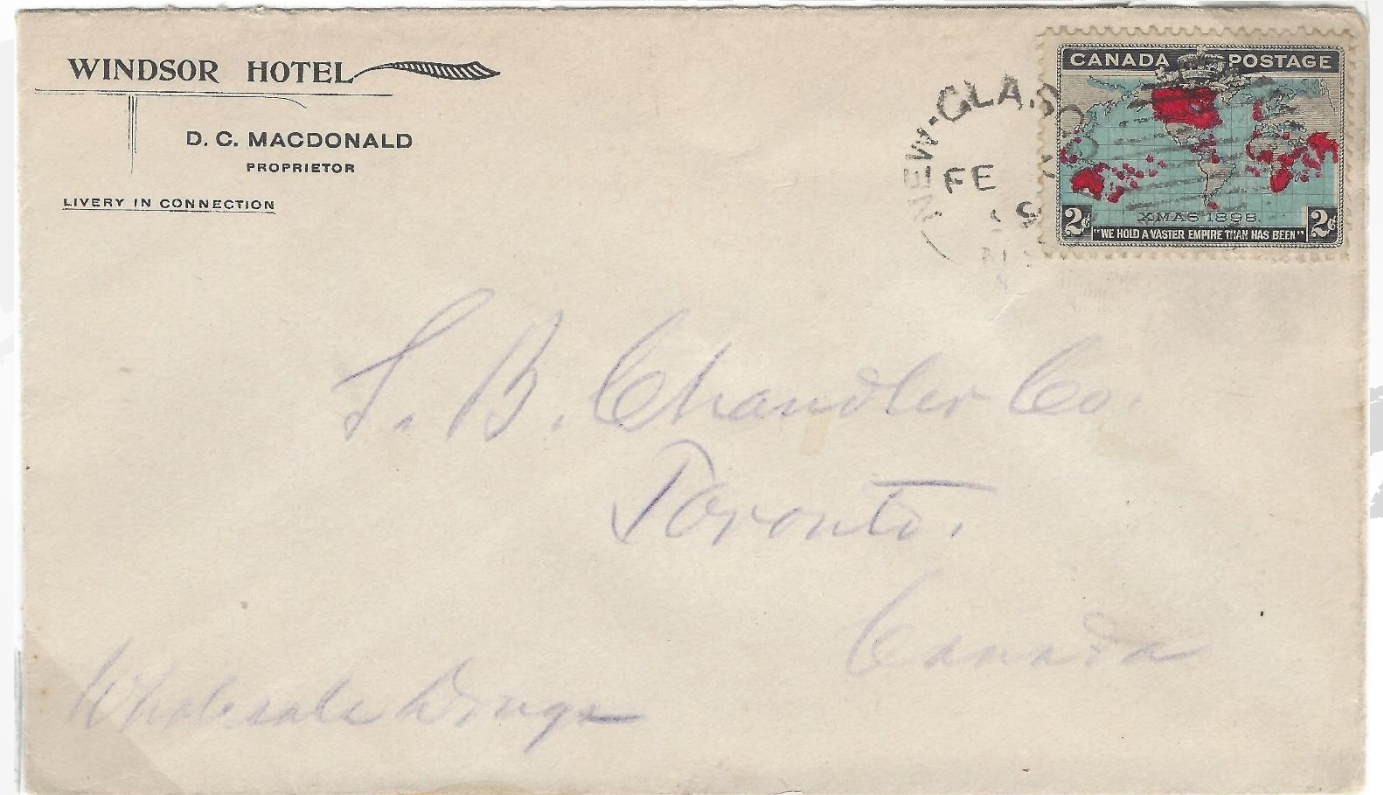 WINDSOR HOTEL
D. C. MACDONALD
PROPRIETOR
LIVERY IN CONNECTION
NEW-GLASGO
FE
CANADA POSTAGE
XMAS 1898.
2¢ 2¢
"WE HOLD A VASTER EMPIRE THAN HAS BEEN"
S. B. Chandler Co.
Toronto.
Canada
Wholesale Drugs